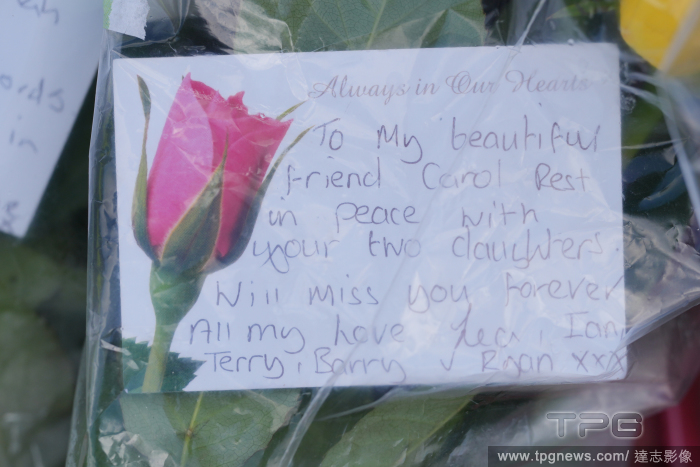 ords
in
Always in Our Hearts
To My beautiful
friend Carol Rest
in peace with
your two daughters.
Will miss you forever
All my love Lea, Ian,
Terry, Barry & Ryan xxx
TPG
www.tpgnews.com/ 達志影像